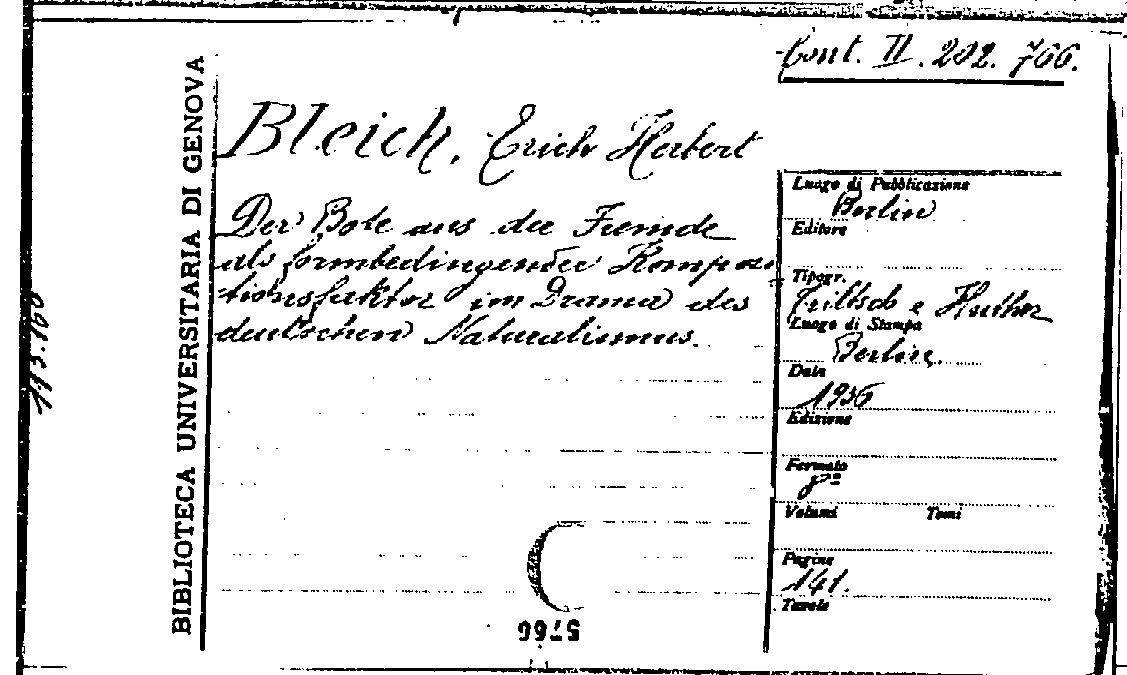 Cont. II. 202. 766.
BIBLIOTECA UNIVERSITARIA DI GENOVA
Bleich, Erich Herbert
Der Bote aus der Fremde
als formbedingender Komposi
tionsfaktor im Drama des
deutschen Naturalismus.
Luogo di Pubblicazione
Berlin
Editore
Tipogr.
Triltsch e Huther
Luogo di Stampa
Berlin
Data
1936
Edizione
Formato
8º
Volumi Tomi
Pagine
141.
Tavole
5766